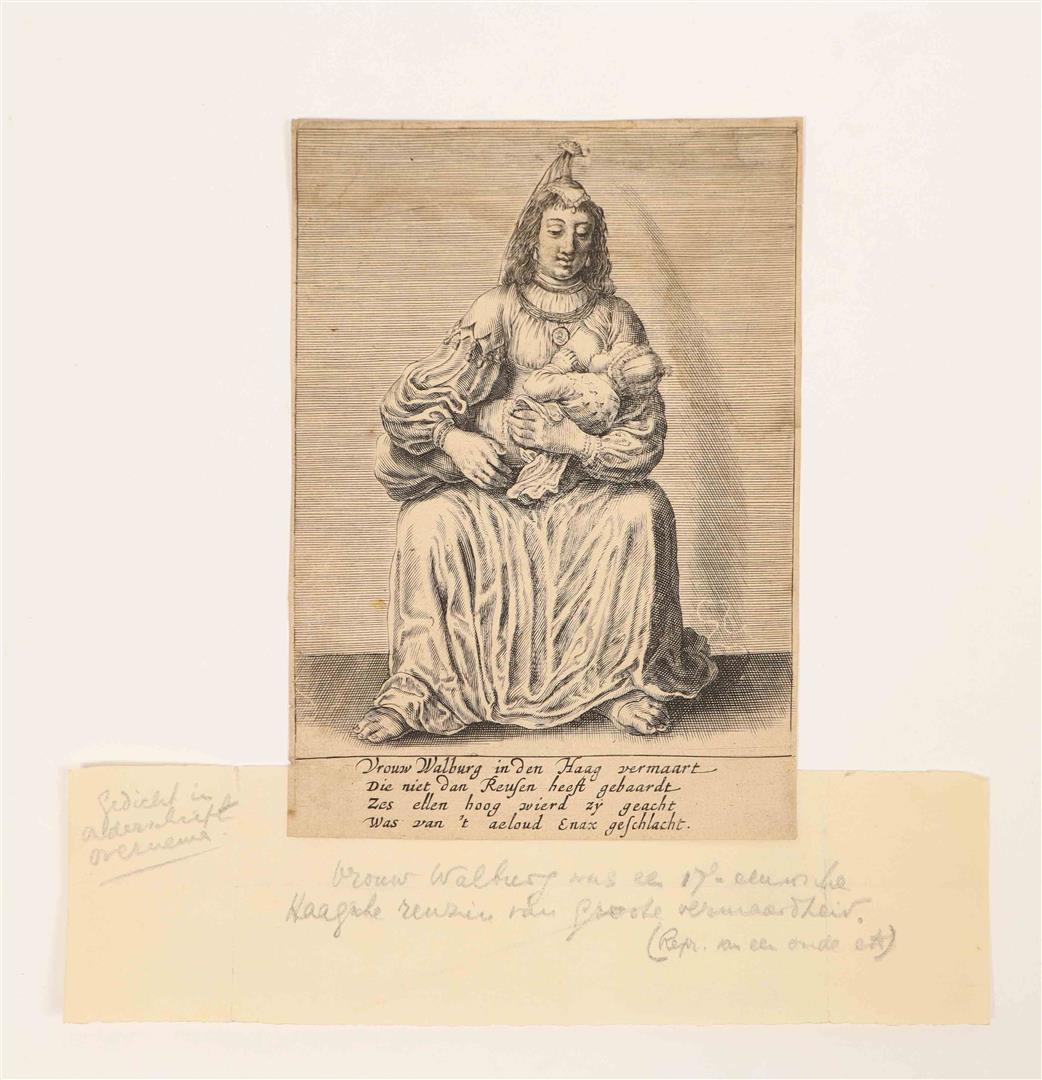 Vrouw Walburg in den Haag vermaart
Die niet dan Reuſen heeft gebaardt
Zes ellen hoog wierd zÿ geacht
Was van 't aeloud Enax geſchlacht.
Gedicht in
onderschrift
overnemen.
Vrouw Walburg was een 17e eeuwsche
Haagsche reuzin van groote vermaardheid.
(Repr. van een oude ets)